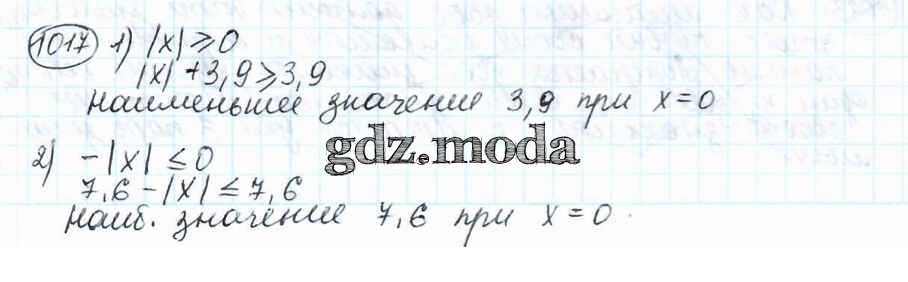 1017 1) |x| ⩾ 0
|x| + 3,9 ⩾ 3,9
Наименьшее значение 3,9 при x = 0
2) -|x| ≤ 0
gdz.moda
7,6 - |x| ≤ 7,6
Наиб. значение 7,6 при x = 0.